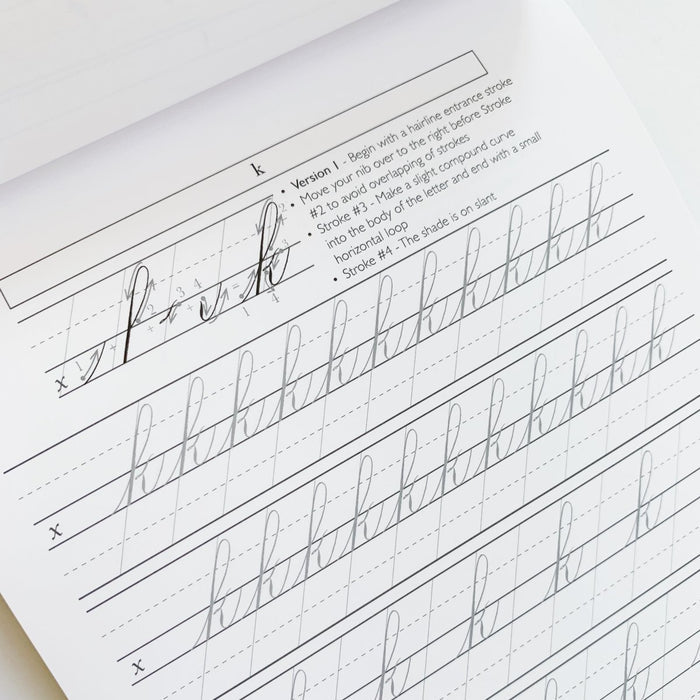 k
• Version 1 - Begin with a hairline entrance stroke
• Move your nib over to the right before Stroke
#2 to avoid overlapping of strokes
• Stroke #3 - Make a slight compound curve
into the body of the letter and end with a small
horizontal loop
• Stroke #4 - The shade is on slant
x 1 + 2 + 3 + 4 = k 1 2 3 4
k k k k k k k k k k k
x k k k k k k k k k k k
x k k k k